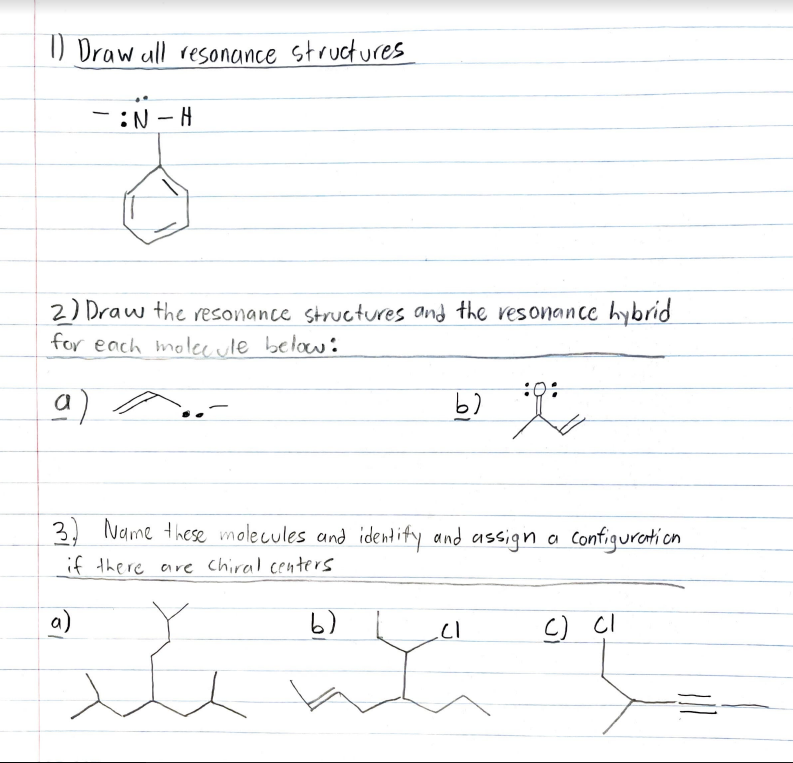 1) Draw all resonance structures
- :N̈ - H
2) Draw the resonance structures and the resonance hybrid
for each molecule below:
a) b) :O:
3) Name these molecules and identify and assign a configuration
if there are chiral centers
a) b) Cl c) Cl